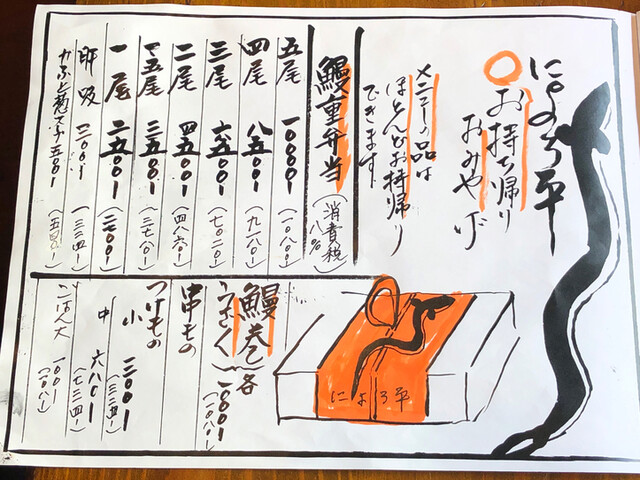 によろ平
○お持ち帰り
おみやげ
メニューの品は
ほとんどお持帰り
できます
鰻重弁当(消費税八%)
五尾 一〇〇〇〇ー(一〇八〇〇ー)
四尾 八五〇〇ー(九一八〇ー)
三尾 六五〇〇ー(七〇二〇ー)
二尾 四五〇〇ー(四八六〇ー)
一.五尾 三五〇〇ー(三七八〇ー)
一尾 二五〇〇ー(二七〇〇ー)
肝吸 三〇〇ー(三二四ー)
かぶと 五〇〇ー(五四〇ー)
鰻巻 各一〇〇〇ー(一〇八〇ー)
うざく
串もの
つけもの
小 三〇〇ー(三二四ー)
中 六八〇ー(七三四ー)
ごはん大 一〇〇ー(一〇八ー)
によろ平